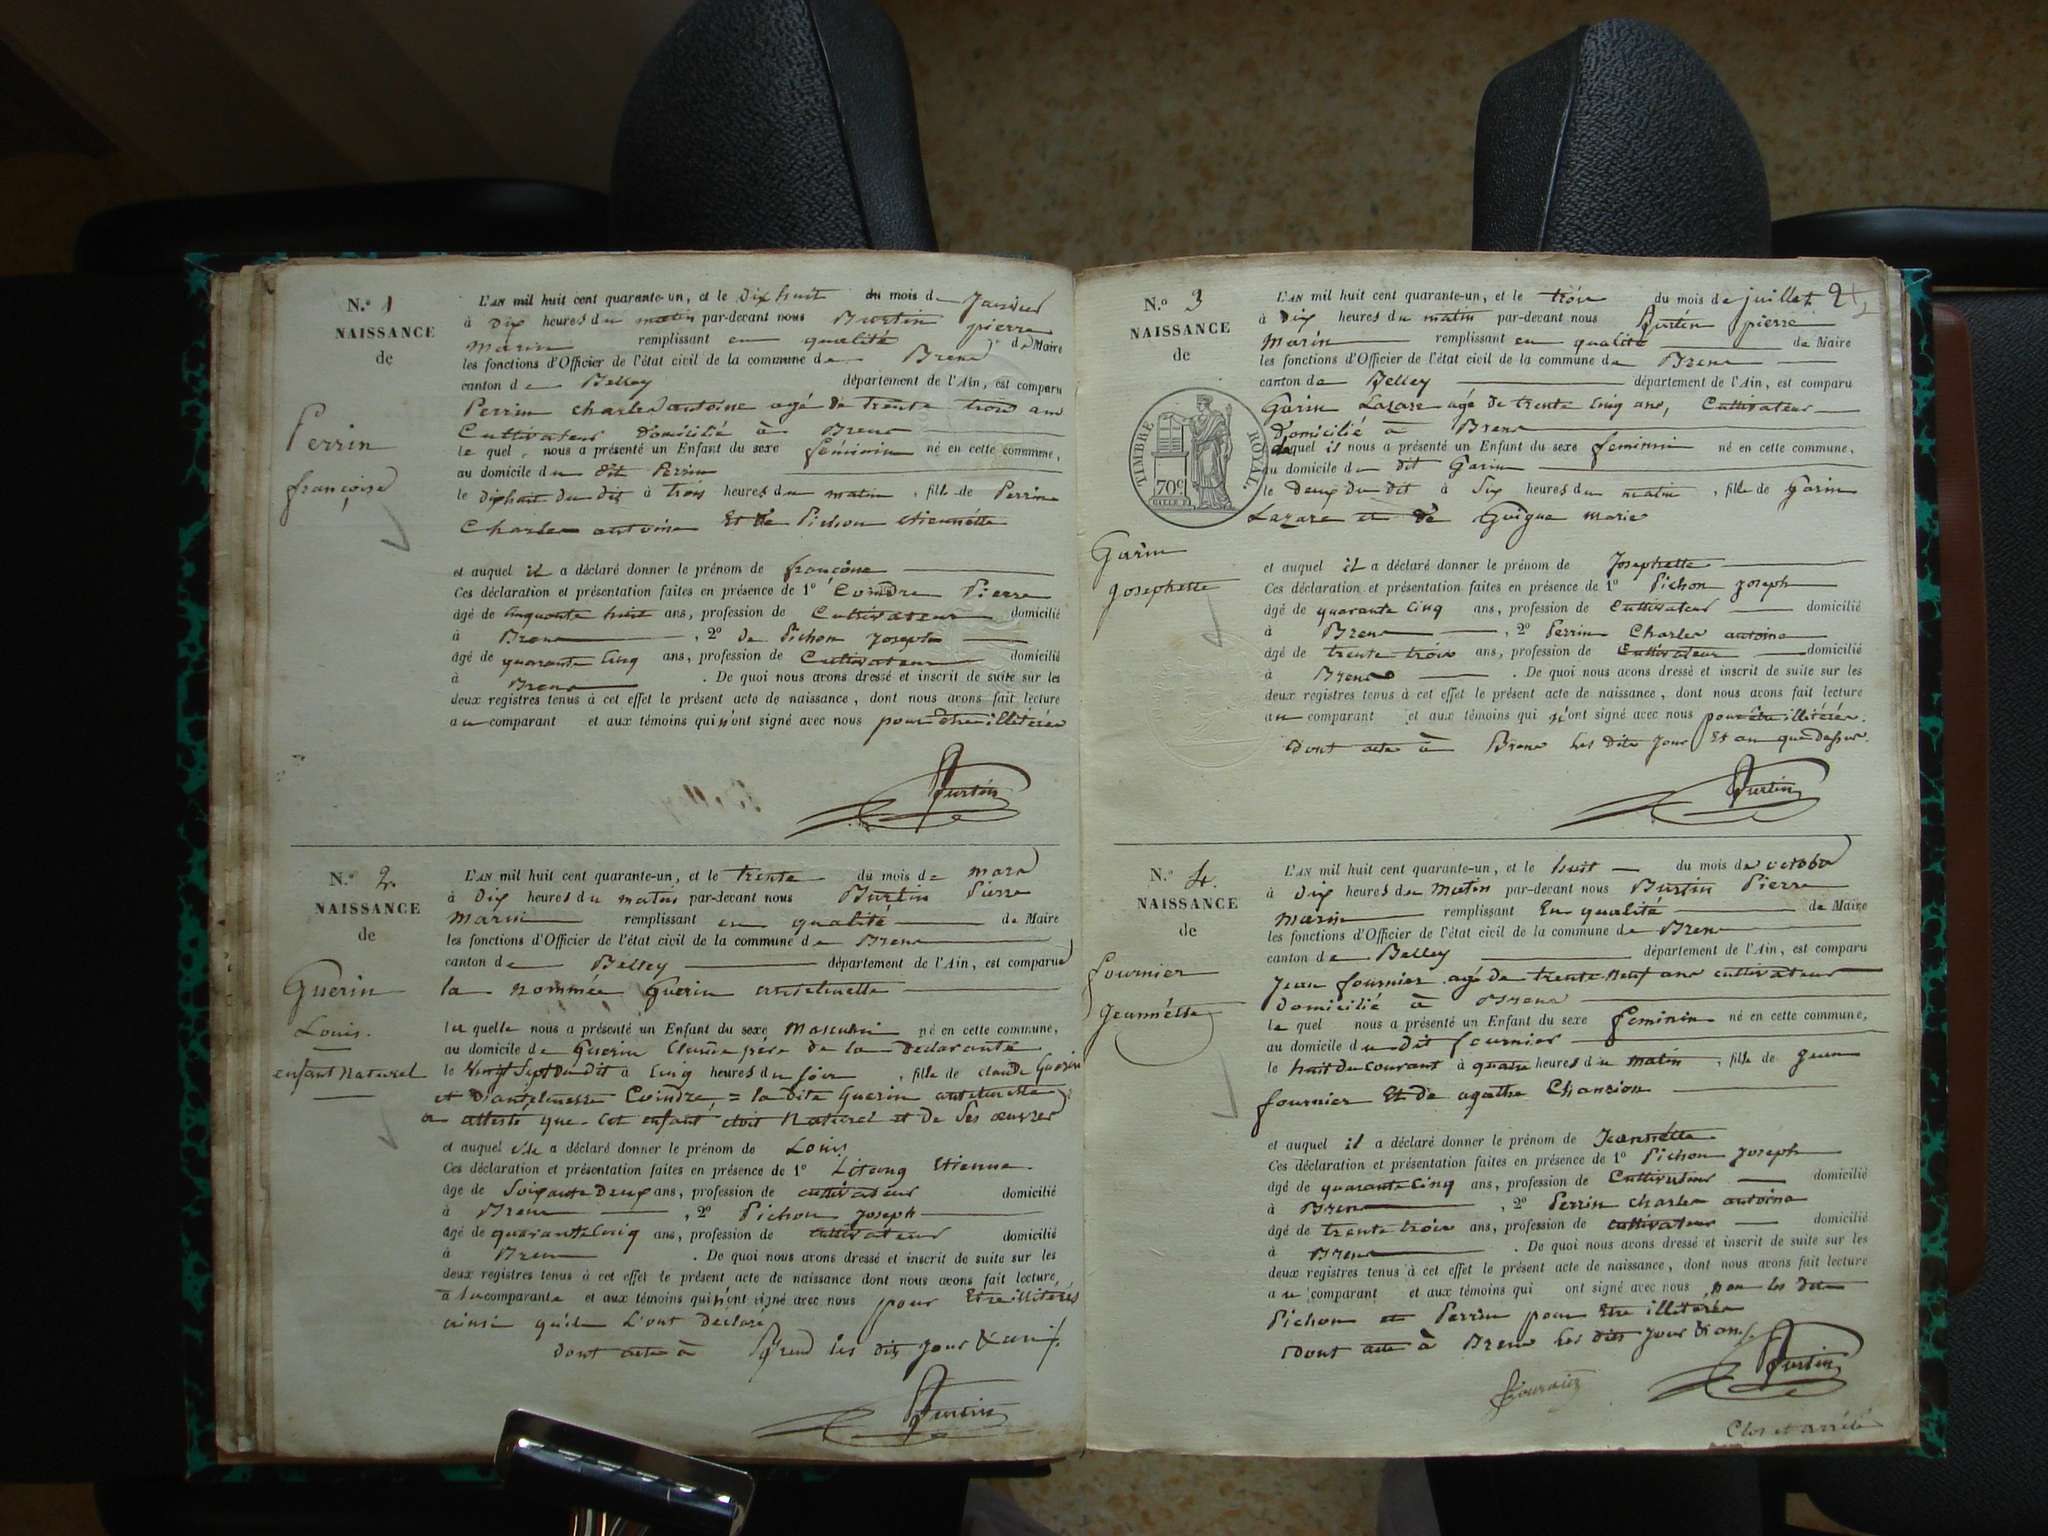 N.° 1
NAISSANCE
de
Perrin
françoise
L'AN mil huit cent quarante-un, et le Dix huit du mois de Janvier
à Dix heures du matin par-devant nous Burtin pierre
Marin remplissant en qualité de Maire
les fonctions d'Officier de l'état civil de la commune de Brens
canton de Belley département de l'Ain, est comparu
Perrin charles antoine agé de trente trois ans
Cultivateur domicilié à Brens
le quel nous a présenté un Enfant du sexe féminin né en cette commune,
au domicile du dit Perrin
le dixhuit du dit à trois heures du matin, fille de Perrin
Charles antoine Et de Pichon etiennette
et auquel il a déclaré donner le prénom de françoise
Ces déclaration et présentation faites en présence de 1° Coindre Pierre
âgé de cinquante huit ans, profession de Cultivateur domicilié
à Brens, 2° de Pichon Joseph
âgé de quarante cinq ans, profession de Cultivateur domicilié
à Brens. De quoi nous avons dressé et inscrit de suite sur les
deux registres tenus à cet effet le présent acte de naissance, dont nous avons fait lecture
au comparant et aux témoins qui n'ont signé avec nous pour être illitérés
Burtin
N.° 2.
NAISSANCE
de
Guerin
Louis.
enfant naturel
L'AN mil huit cent quarante-un, et le trente du mois de mars
à Dix heures du matin par-devant nous Burtin Pierre
Marin remplissant en qualité de Maire
les fonctions d'Officier de l'état civil de la commune de Brens
canton de Belley département de l'Ain, est comparue
la nommée Guerin antelmette
la quelle nous a présenté un Enfant du sexe Masculin né en cette commune,
au domicile de Guerin Claude père de la declarante
le Vingt Sept du dit à cinq heures du soir, fils de claude Guerin
et d'antelmette Coindre = la dite Guerin antelmette
a attesté que cet enfant etoit Naturel et de Ses œuvres
et auquel elle a déclaré donner le prénom de Louis
Ces déclaration et présentation faites en présence de 1° Etienne.
âgé de Soixante Deux ans, profession de cultivateur domicilié
à Brens, 2° Pichon Joseph
âgé de quarante cinq ans, profession de cultivateur domicilié
à Brens. De quoi nous avons dressé et inscrit de suite sur les
deux registres tenus à cet effet le présent acte de naissance dont nous avons fait lecture
à la comparante et aux témoins qui n'ont signé avec nous pour Etre illitérés
ainsi qu'ils L'ont declaré
Dont acte à Brens les dits jour & an
Burtin
N.° 3
NAISSANCE
de
TIMBRE ROYAL.
70c
Garin
Josephette
2
L'AN mil huit cent quarante-un, et le trois du mois de juillet
à Dix heures du matin par-devant nous Burtin pierre
Marin remplissant en qualité de Maire
les fonctions d'Officier de l'état civil de la commune de Brens
canton de Belley département de l'Ain, est comparu
Garin Lazare agé de trente cinq ans, Cultivateur
domicilié à Brens
lequel il nous a présenté un Enfant du sexe feminin né en cette commune,
au domicile du dit Garin
le deux du dit à Six heures du matin, fille de Garin
Lazare et de Guigue Marie
et auquel il a déclaré donner le prénom de Josephette
Ces déclaration et présentation faites en présence de 1° Pichon Joseph
âgé de quarante cinq ans, profession de Cultivateur domicilié
à Brens, 2° Perrin Charles antoine
âgé de trente-trois ans, profession de Cultivateur domicilié
à Brens. De quoi nous avons dressé et inscrit de suite sur les
deux registres tenus à cet effet le présent acte de naissance, dont nous avons fait lecture
au comparant et aux témoins qui n'ont signé avec nous pour être illitérés.
Dont acte à Brens les dits Jour Et an que dessus.
Burtin
N.° 4.
NAISSANCE
de
fournier
Jeannette
L'AN mil huit cent quarante-un, et le huit du mois de octobre
à Dix heures du Matin par-devant nous Burtin Pierre
Marin remplissant En qualité de Maire
les fonctions d'Officier de l'état civil de la commune de Brens
canton de Belley département de l'Ain, est comparu
Jean fournier agé de trente Neuf ans cultivateur
Domicilié à Brens
le quel nous a présenté un Enfant du sexe feminin né en cette commune,
au domicile du dit fournier
le huit du courant à quatre heures du matin, fille de Jean
fournier Et de agathe Chanсion
et auquel il a déclaré donner le prénom de Jeannette
Ces déclaration et présentation faites en présence de 1° Pichon Joseph
âgé de quarante cinq ans, profession de Cultivateur domicilié
à Brens, 2° Perrin charles antoine
âgé de trente trois ans, profession de cultivateur domicilié
à Brens. De quoi nous avons dressé et inscrit de suite sur les
deux registres tenus à cet effet le présent acte de naissance, dont nous avons fait lecture
au comparant et aux témoins qui ont signé avec nous non les dits
Pichon et Perrin pour Etre illitérés
Dont acte à Brens les dits jour & an
Burtin
Clos et arrêté